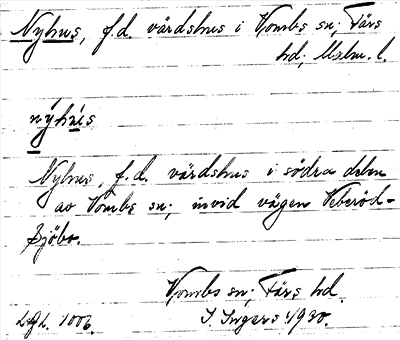 Nyhus, f.d. värdshus i Vombs sn; Färs
hd; Malm. l.
nýhùs
Nyhus, f.d. värdshus i södra delen
av Vombs sn; invid vägen Veberöd-
Sjöbo.
Vombs sn; Färs hd.
I. Ingers 1930.
1006.